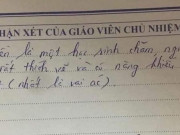 HẬN XÉT CỦA GIÁO VIÊN CHỦ NHIỆM
là một học sinh chăm, ng
rất thích vẽ và có năng khiếu
(nhất là vai ác)